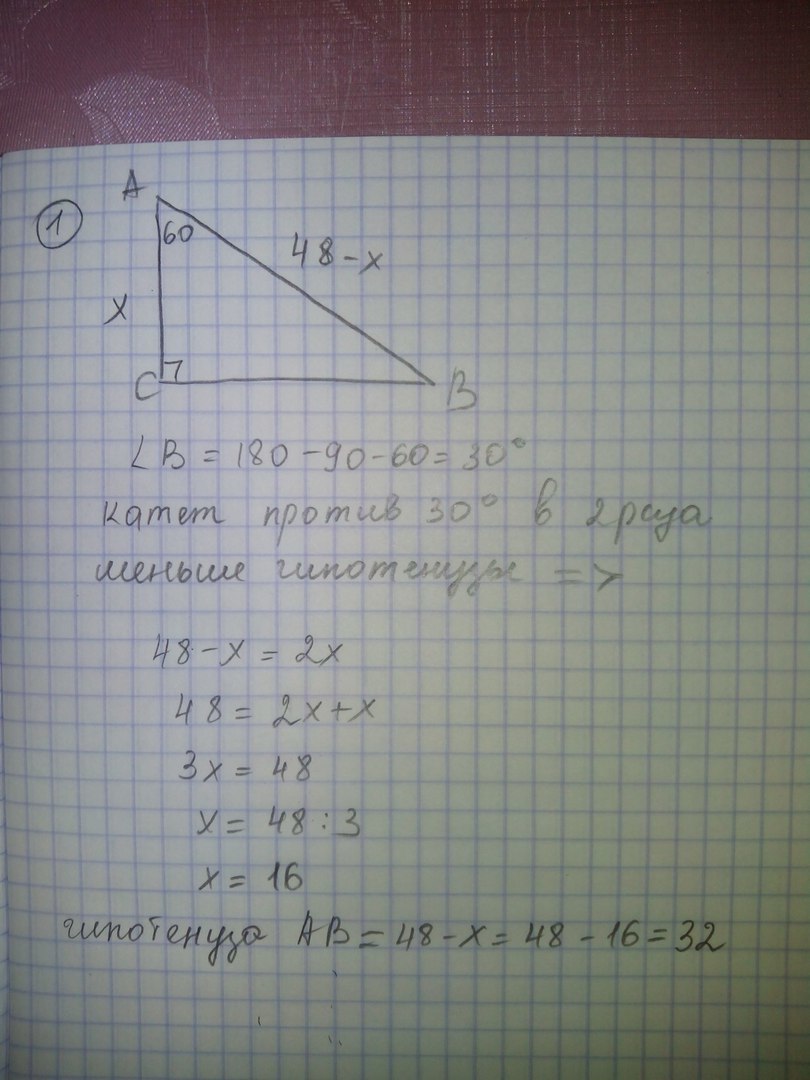 1
A
60
48-x
x
C
B
∠B = 180-90-60=30°
катет против 30° в 2 раза
меньше гипотенузы =>
48-x = 2x
48 = 2x+x
3x = 48
x = 48:3
x = 16
гипотенуза AB = 48-x = 48-16=32